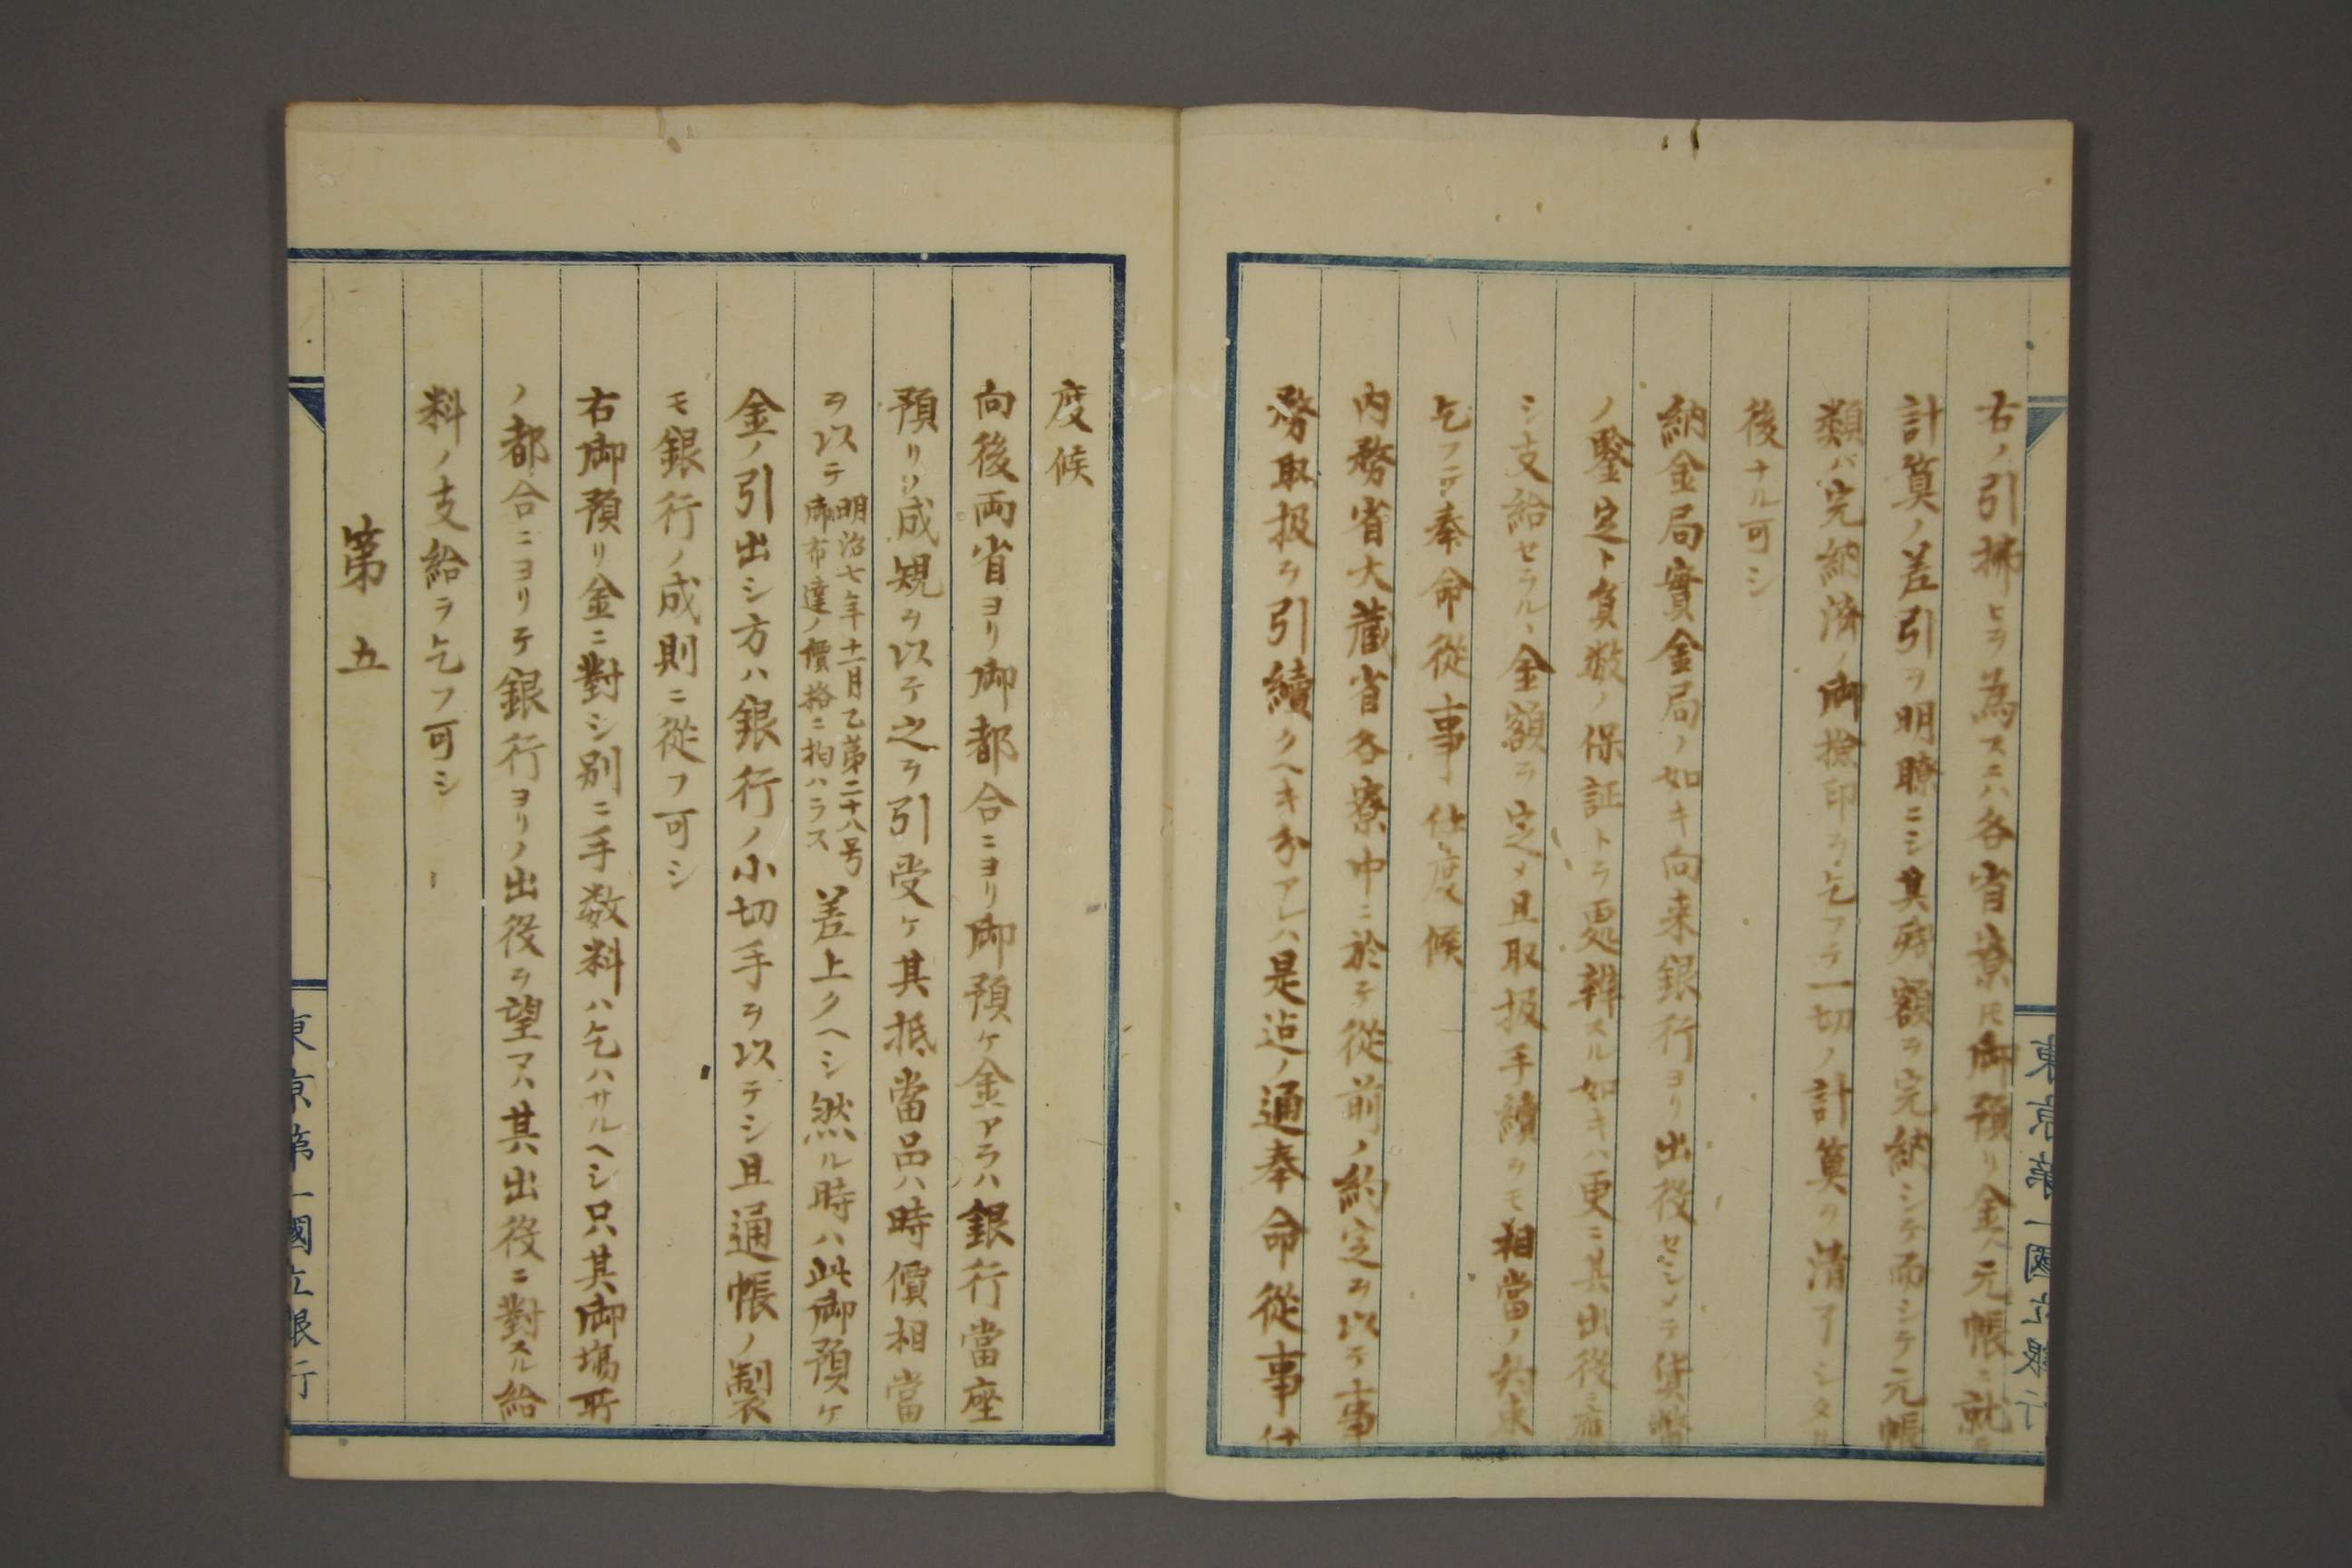 右ノ引拂ヒヲ為スニハ各省寮ノ御預リ金ノ元帳ニ就
計算ノ差引ヲ明瞭ニシ其殘額ヲ完納シ而シテ元帳
類バ完納濟ノ御撿印ヲ乞フテ一切ノ計算ヲ清了シタル
後ナル可シ
納金局實金局ノ如キ向来銀行ヨリ出役セシメテ貨幣
ノ鑒定ト負数ノ保証トヲ處辨スル如キハ更ニ其出役ニ應
シ支給セラルヽ金額ヲ定メ且取扱手續ヲモ相當ノ約束
乞フテ奉命從事仕度候
内務省大藏省各寮中ニ於テ從前ノ約定ヲ以テ事
務取扱ヲ引續クヘキ分アレハ是迠ノ通奉命從事仕
度候
向後両省ヨリ御都合ニヨリ御預ケ金アラハ銀行當座
預リノ成規ヲ以テ之ヲ引受ケ其抵當品ハ時價相當
ヲ以テ
明治七年十一月乙第二十八号
御布達ノ價格ニ拘ハラス
差上クヘシ然ル時ハ此御預ケ
金ノ引出シ方ハ銀行ノ小切手ヲ以テシ且通帳ノ製
モ銀行ノ成則ニ從フ可シ
右御預リ金ニ對シ別ニ手数料ハ乞ハサルヘシ只其御塲所
ノ都合ニヨリテ銀行ヨリノ出役ヲ望マハ其出役ニ對スル給
料ノ支給ヲ乞フ可シ
第五
東京第一國立銀行